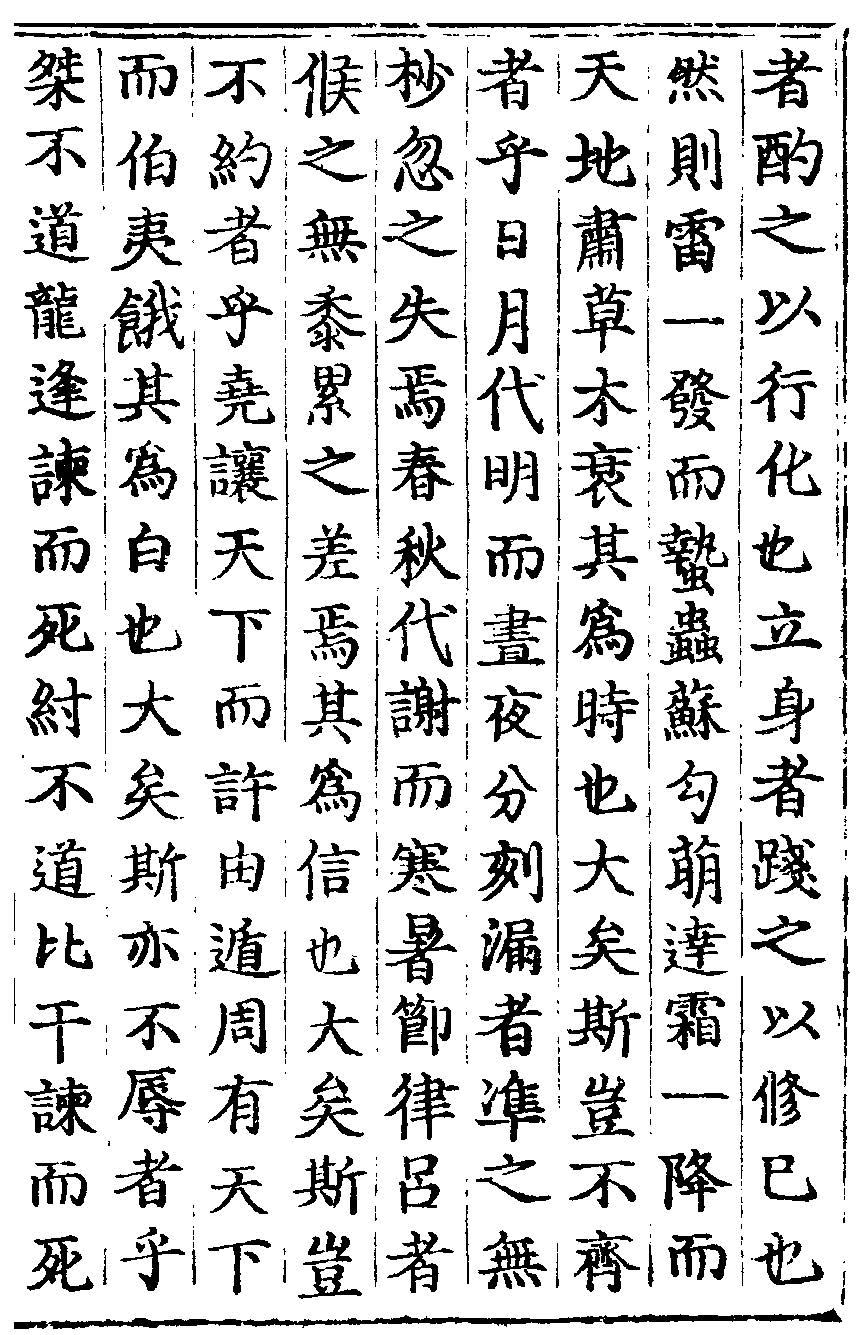 者酌之以行化也立身者踐之以修已也
然則雷一發而蟄蟲蘇勾萌達霜一降而
天地肅草木衰其爲時也大矣斯豈不齊
者乎日月代明而晝夜分刻漏者準之無
杪忽之失焉春秋代謝而寒暑節律呂者
候之無黍累之差焉其爲信也大矣斯豈
不約者乎堯讓天下而許由遁周有天下
而伯夷餓其爲白也大矣斯亦不辱者乎
桀不道龍逢諫而死紂不道比干諫而死